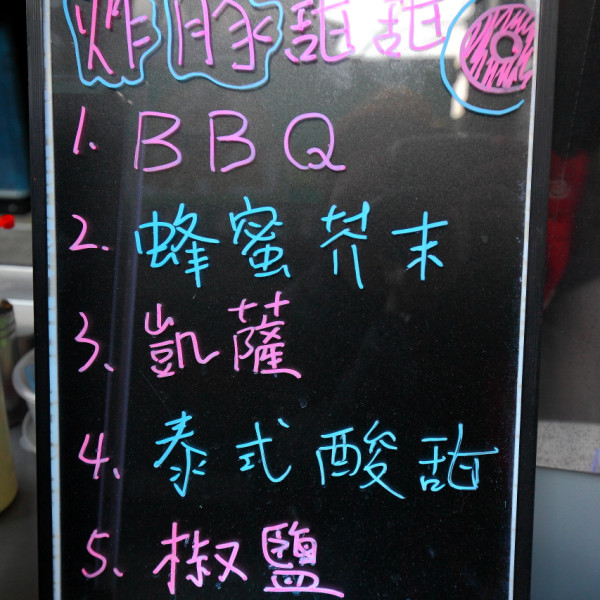 炸豚甜甜
1. BBQ
2. 蜂蜜芥末
3. 凱薩
4. 泰式酸甜
5. 椒鹽